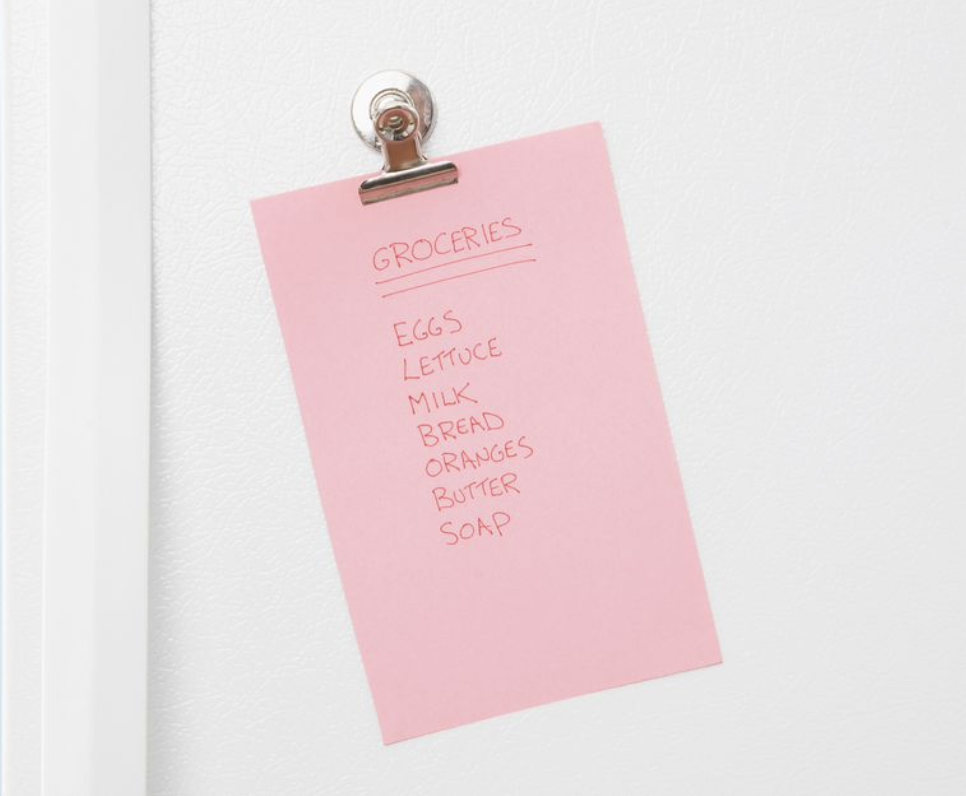 GROCERIES
EGGS
LETTUCE
MILK
BREAD
ORANGES
BUTTER
SOAP